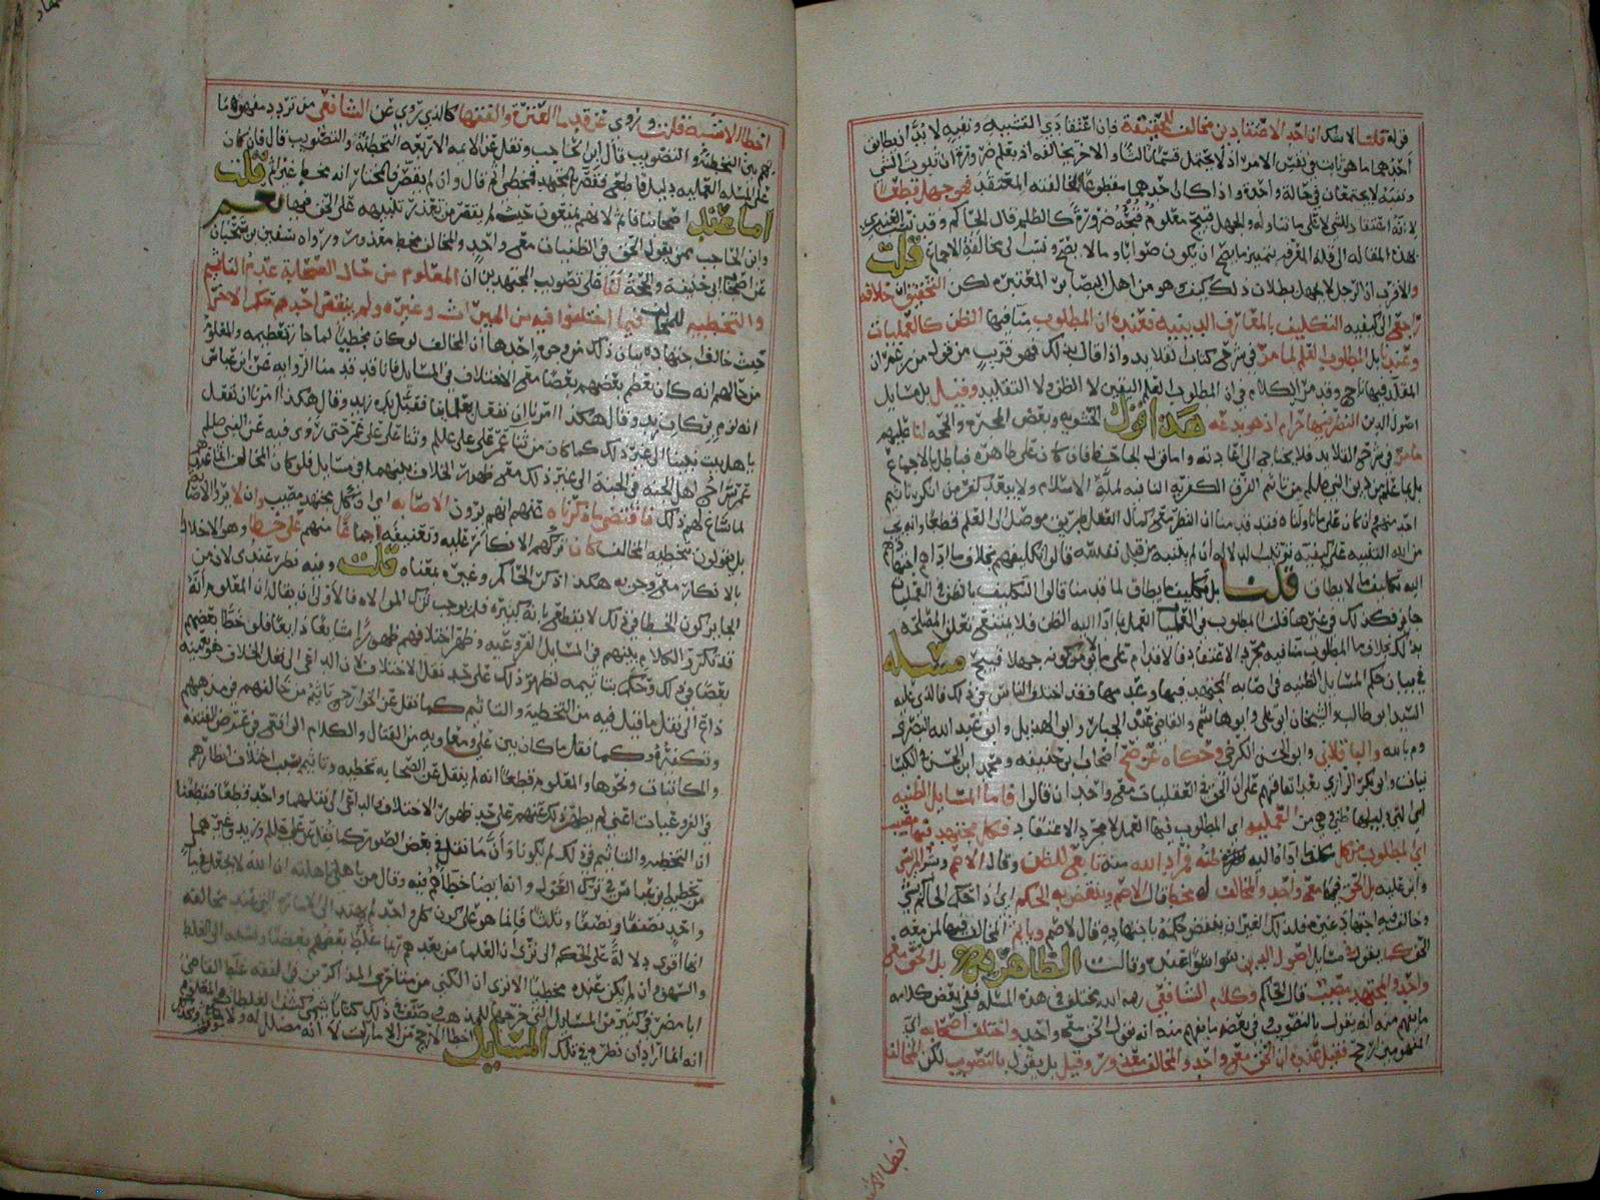 قوله قلنا لا شك ان احد الاعتقادين مخالف للحقيقة فان اعتقاد ذي التشبيه ونفيه لا بد ان يطابق
احدهما ما هو ثابت في نفس الامر اذ لا يحتمل قسما ثالثا والاخر يخالفه اذ يعلم ضرورة ان ثبوت الشي
ونفيه لا يجتمعان في حالة واحدة واذا كان احدهما مقطوعا لمخالفته المعتقد فهو جهل قطعا
لانه اعتقاد الشي لا على ما تناوله والجهل قبيح معلوم قبحه ضرورة كالظلم قال الحاكم وقد
هذه المقالة الى انه ان يكون صوابا وما لا يصح مخالفة الاجماع قلت
والاقرب ان الرجل لا يجهل بطلان ذلك كيف وهو من اهل البصاير المعتبرة لكن التحقيق ان خلافه
راجع الى كيفيه التكليف بالمعارف الدينية فعنده ان المطلوب منا فيها الظن كالعمليات
وعندنا بل المطلوب العلم لما مر في شرح كتاب القلايد واذا قال بذلك فهو قريب من قول من زعم ان
المقلد فيها ناج وقد مر الكلام في ان المطلوب العلم اليقين لا الظن ولا التقليد وقيل بل مسايل
اصول الدين النظر فيها حرام اذ هو بدعه هذا قول الحشويه وبعض المجبره والحجه لنا عليهم
ما مر في شرح القلايد فلا يحتاج الى اعادته واما قول الجاحظ فان كان على ظاهره فباطل بالاجماع
من دين النبي صللم من تاثيم الفرق الكفريه النافيه لملة الاسلام ولا يبعد كفر من انكر تاثيم
احد منهم وان كان على ما تاولناه فقد قدمنا ان النظر مع كمال العقل طريق موصل الى العلم قطعا وانه يجب
من الله التنبيه على كيفية ترتيب الدلاله ان لم يتنبه من قبل نفسه قالوا تكليفهم بخلاف ما اداهم اجتهادهم
اليه تكليف ما لا يطاق قلنا بل تكليف ما يطاق لما قدمنا قالوا التكليف بالظن في العمليات
جايز فكذلك في غيرها قلنا المطلوب في العمليات العمل بما ادا اليه الظن فلا يمتنع تعلق المصلحه
بذلك بخلاف ما المطلوب منا فيه مجرد الاعتقاد فالاقدام على ما لا يؤمن كونه جهلا قبيح مسئله
في بيان حكم المسايل الظنيه في اصابه المجتهد فيها وعدمها فقد اختلف الناس في ذلك فالذي عليه
السيد ابو طالب والشيخان ابو علي وابو هاشم والقاضي عبد الجبار وابو الهذيل وابو عبد الله البصري
والباقلاني وابو الحسن الكرخي وحكاه عن اصحاب ابي حنيفه ومحمد ابن الحسن
وابو بكر الرازي بعد اتفاقهم على ان الحق في العقليات مع واحد ان قالوا فاما المسايل الظنيه
اي التي دليلها ظني وهي من العمليه اي المطلوب فيها العمل لا مجرد الاعتقاد فكل مجتهد فيها مصيب
اي المطلوب من كل مكلف ما اداه اليه ظنه فمراد الله منه تابع للظن وقال الاصم وبشر المريسي
وابن عليه بل الحق فيها مع واحد والمخالف له مخط قال الاصم وينقض به الحكم اي اذا حكم الحاكم بشي
وخالف فيه اجتهاد غيره فلذلك الغير ان ينقض حكمه باجتهاده قال الاصم وياثم المخالف فيها لمن معه
الحق كما يقول في مسايل اصول الدين سوا سوا عنده وقالت الظاهريه بل الحق مع
واحد والمجتهد مصيب قال الحاكم وكلام الشافعي رحمه الله يختلف في هذه المسئله ففي بعض كلامه
ما يفهم منه انه يقول بالتصويب وفي بعضه ما يفهم منه انه يقول الحق مع واحد واختلف اصحابه اي
فقيل عنده ان الحق مع واحد والمخالف معذور وقيل بل يقول بالتصويب لكن المخالف
اخطا الا
اخطا الاشبه قلت وروى عن قدما العترة والفقها كالذي روي عن الشافعي من تردد مفهوما
بين التخطيه والتصويب قال ابن الحاجب ونقل عن الايمه الاربعه التخطئه والتصويب قال فان كان
على المسئله العمليه دليل قاطع فقصر المجتهد فمخطي اثم قال وان لم يقصر فالمختار انه مخط غير اثم قلت
اما عند اصحابنا فاثم لانهم يمنعون حيث لم يقصر من تعذر تنبيهه على الحق فيها نعم
وابن الحاجب ممن يقول الحق في الظنيات مع واحد والمخالف مخط معذور ورواه سفين بن سحبان
عن اصحاب ابي حنيفه والحجة لنا على تصويب المجتهدين ان المعلوم من حال الصحابة عدم التاثيم
والتخطيه للمخالف فيما اختلفوا فيه من الميراث وغيره ولم ينقض احدهم حكم الاخر
حيث خالف اجتهاده بيان ذلك من وجوه احدها ان المخالف لو كان مخطيا لما جاز تعظيمه والمعلوم
من حالهم انه كان يعظم بعضهم بعضا مع الاختلاف في المسايل فانا قد قدمنا الروايه عن ابن عباس
انه لزم بركاب زيد وقال هكذا امرنا ان نفعل بعلماينا فقبل يده زيد وقال هكذا امرنا ان نفعل
باهل بيت نبينا الى غير ذلك كما كان من ثنا عمر على علي عللم وثنا علي على عمر حتى روى فيه عن النبي صللم
عمر سراج اهل الجنه في الجنة الى غير ذلك مع ظهور الخلاف بينهما في مسايل فلو كان المخالف اثما عندهم
لما شاع لهم ذلك فاقتضى ما ذكرناه عنهم انهم يرون الاصابه اي ان كل مجتهد مصيب وان لا يروا الاصابه
بل يقولون بتخطيه المخالف كان تركهم الانكار عليه وتعنيفه اجماعا منهم على خطا وهو الاخلال
بالانكار مع وجوبه هكذا ذكر الحاكم وغيره معناه قلت وفيه نظر عندي لان من
الجايز كون الخطا في ذلك لا يقطع بانه كبيره فلا يوجب ترك الموالاه فالاولى ان يقال ان المعلوم انه
قد تكرر الكلام بينهم في المسايل الفروعيه وظهر اختلافهم ظهورا شايعا ذايعا فلو خطا بعضهم
بعضا في ذلك وحكم بتاثيمه لظهر ذلك على حد نقل الاختلاف لان الداعي الى نقل الخلاف هو بعينه
داع الى نقل ما قيل فيه من التخطية والتاثيم كما نقل عن الخوارج تاثيم من خالفهم في مذهبهم
وتكفيره وكما نقل ما كان بين علي ومعاويه من القتال والكلام
والمكاتبات ونحوها والمعلوم قطعا انه لم ينقل عن الصحابه تخطيه وتاثيم بسبب اختلاف انظارهم
في الفروعيات اعني لم يظهر ذلك عنهم على حد ظهور الاختلاف والداعي الى نقلهما واحد قطعا فقطعنا
ان التخطيه والتاثيم في ذلك لم يكونا وان ما نقل في بعض الصور كما نقل عن علي عللم وزيد وغيرهما
من تخطيه ابن عباس في ترك العول وانه ايضا خطاهم فيه وقال من باهلني باهلته ان الله لا يجعل في مال
واحد نصفا ونصفا وثلثا فانما هو على كون كل واحد لم يهتد الى الامارة التي عند مخالفه
انها اقوى دلاله على الحكم الى ترى ان العلما من بعدهم ربما غلط بعضهم بعضا ونسبه الى الغلط
والسهو وان لم يكن عنده مخطيا الا ترى ان الكني من متاخري المذاكرين في الفقه غلط القاضي
ابا مضر في كثير من المسايل التي خرجها للمذهب وصنف في ذلك كتابا يسمى كشف الغلطات والمعلوم
انه انما اراد ان نظره في تلك المسايل اخطا الارجح من الامارات لا انه مضلل له ولا